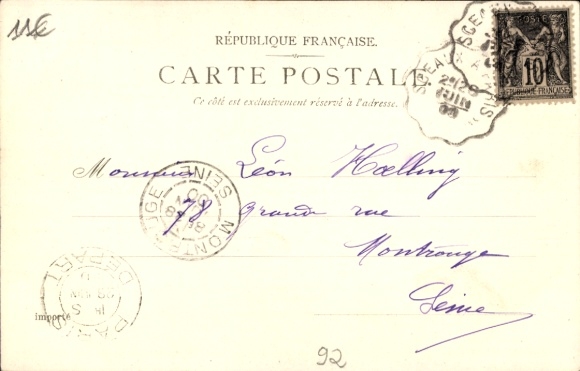 11€
RÉPUBLIQUE FRANÇAISE.
CARTE POSTALE
Ce côté est exclusivement réservé à l'adresse.
POSTE
10
RÉPUBLIQUE FRANÇAISE
SCEAUX A PARIS
2E/20
JUIN
00
Monsieur Léon Hælling
78 Grande rue
Montrouge
Seine
MONTROUGE SEINE
PARIS DEPART
importé
92